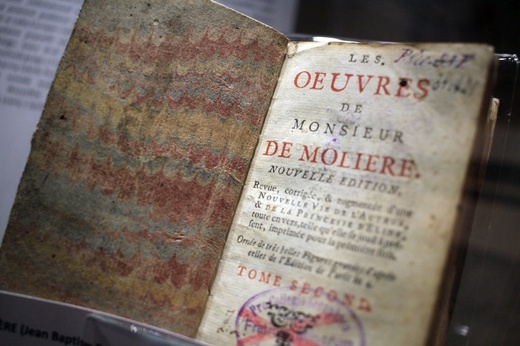 LES
OEUVRES
DE
MONSIEUR
DE MOLIERE.
NOUVELLE EDITION,
Revue, corrigée, & augmentée d'une
NOUVELLE VIE DE L'AUTEUR,
& DE LA PRINCESSE D'ELIDE,
toute en vers, telle qu'elle se joue à pré-
sent, imprimée pour la première fois.
Ornée de très belles Figures
celles de l'Edition de Paris in
TOME SECOND.
ÈRE (Jean Baptis